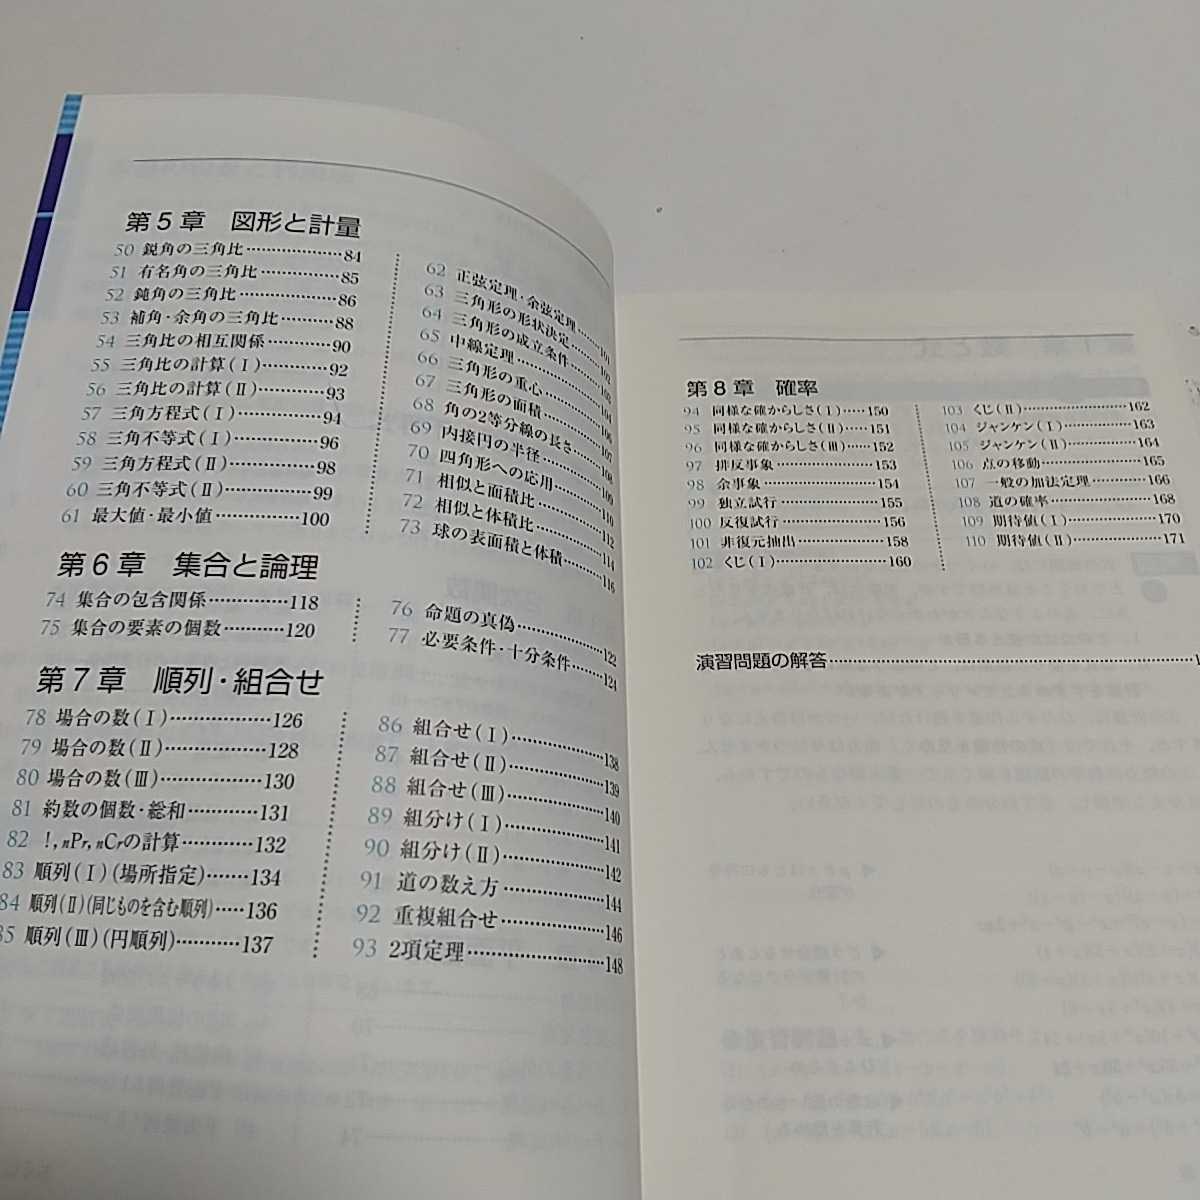 第5章 図形と計量
50 鋭角の三角比 84
51 有名角の三角比 85
52 鈍角の三角比 86
53 補角・余角の三角比 88
54 三角比の相互関係 90
55 三角比の計算(Ⅰ) 92
56 三角比の計算(Ⅱ) 93
57 三角方程式(Ⅰ) 94
58 三角不等式(Ⅰ) 96
59 三角方程式(Ⅱ) 98
60 三角不等式(Ⅱ) 99
61 最大値・最小値 100
62 正弦定理・余弦定理 101
63 三角形の形状決定 102
64 三角形の成立条件 103
65 中線定理 104
66 三角形の重心
67 三角形の面積 106
68 角の2等分線の長さ 107
69 内接円の半径 108
70 四角形への応用 109
71 相似と面積比 110
72 相似と体積比 112
73 球の表面積と体積 114
116
第6章 集合と論理
74 集合の包含関係 118
75 集合の要素の個数 120
76 命題の真偽 122
77 必要条件・十分条件 124
第7章 順列・組合せ
78 場合の数(Ⅰ) 126
79 場合の数(Ⅱ) 128
80 場合の数(Ⅲ) 130
81 約数の個数・総和 131
82 !, nPr, nCrの計算 132
83 順列(Ⅰ)(場所指定) 134
84 順列(Ⅱ)(同じものを含む順列) 136
85 順列(Ⅲ)(円順列) 137
86 組合せ(Ⅰ) 138
87 組合せ(Ⅱ) 139
88 組合せ(Ⅲ) 140
89 組分け(Ⅰ) 141
90 組分け(Ⅱ) 142
91 道の数え方 144
92 重複組合せ 146
93 2項定理 148
第8章 確率
94 同様な確からしさ(Ⅰ) 150
95 同様な確からしさ(Ⅱ) 151
96 同様な確からしさ(Ⅲ) 152
97 排反事象 153
98 余事象 154
99 独立試行 155
100 反復試行 156
101 非復元抽出 158
102 くじ(Ⅰ) 160
103 くじ(Ⅱ) 162
104 ジャンケン(Ⅰ) 163
105 ジャンケン(Ⅱ) 164
106 点の移動 165
107 一般の加法定理 166
108 道の確率 168
109 期待値(Ⅰ) 170
110 期待値(Ⅱ) 171
演習問題の解答